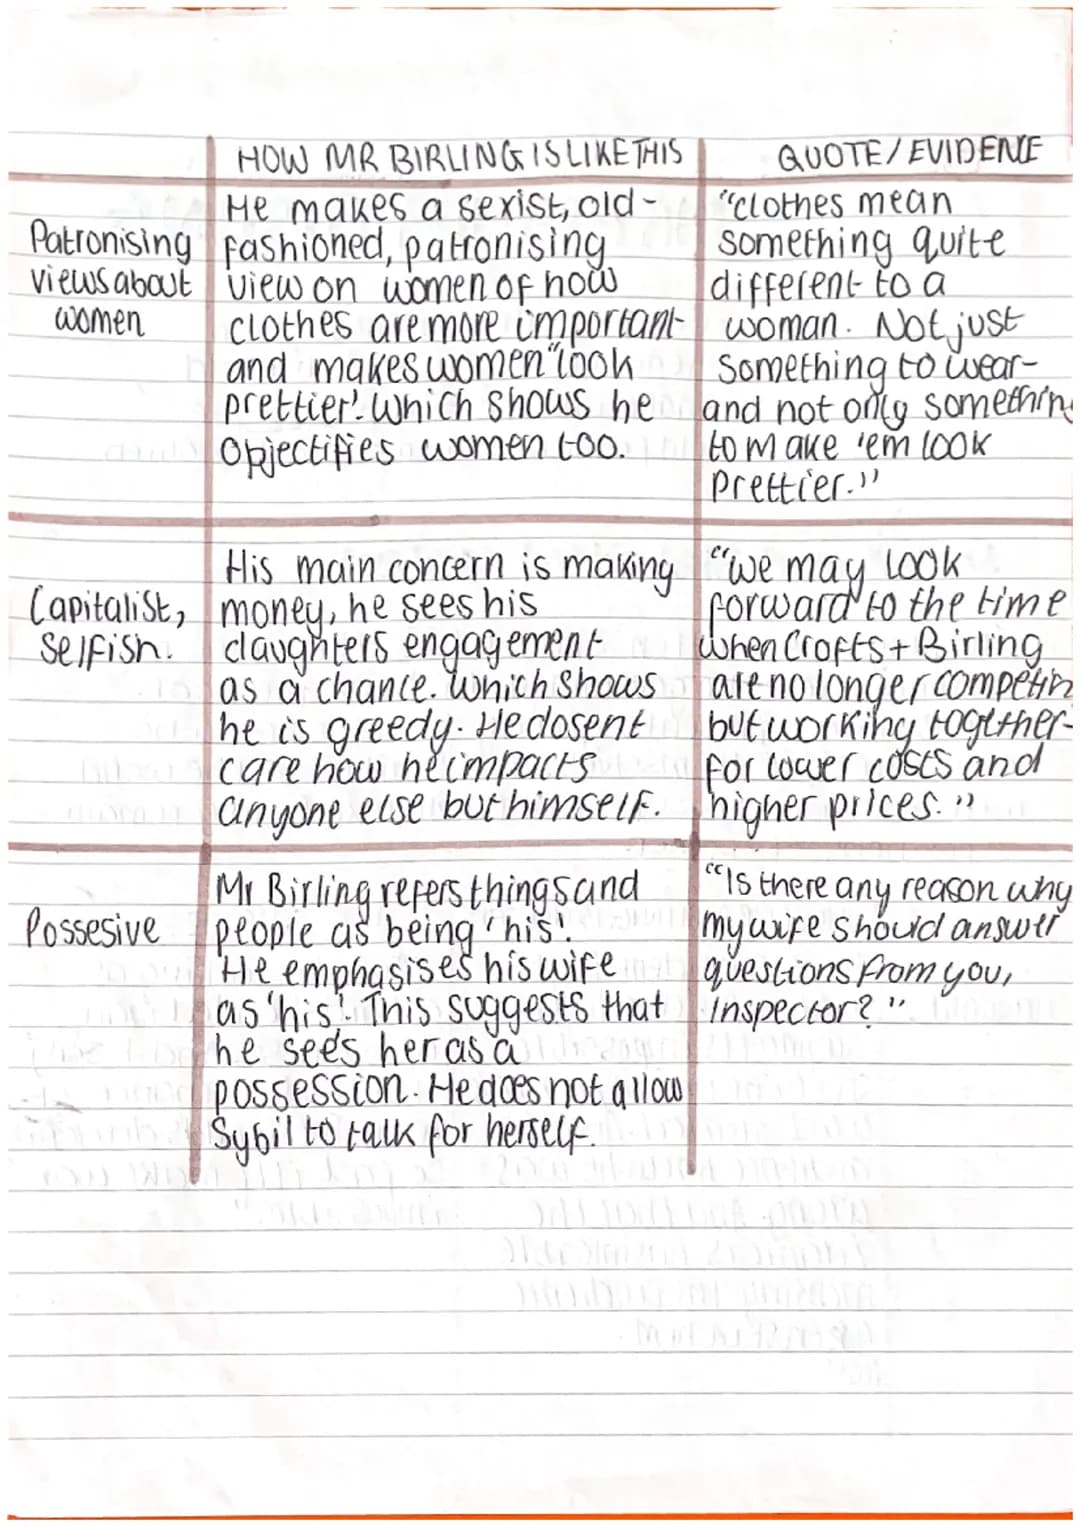 HOW MR BIRLING IS LIKE THIS
QUOTE/EVIDENCE
Patronising
views about
women
He makes a sexist, old-
fashioned, patronising
view on women of how
clothes are more important
and makes women "look
prettier'. Which shows he
objectifies women too.
"clothes mean
something quite
different to a
woman. Not just
something to wear-
and not only somethin
to make 'em look
prettier."
Capitalist,
selfish.
His main concern is making
money, he sees his
daughters engagement
as a chance. Which shows
he is greedy. He dosent
care how he impacts
anyone else but himself.
"we may look
forward to the time
when Crofts + Birling
are no longer competin
but working together-
for lower costs and
higher prices."
Possesive
Mr Birling refers things and
people as being 'his'.
He emphasises his wife
as 'his'. This suggests that
he sees her as a
possession. He does not allow
Sybil to talk for herself.
"Is there any reason why
my wife should answer
questions from you,
Inspector?"